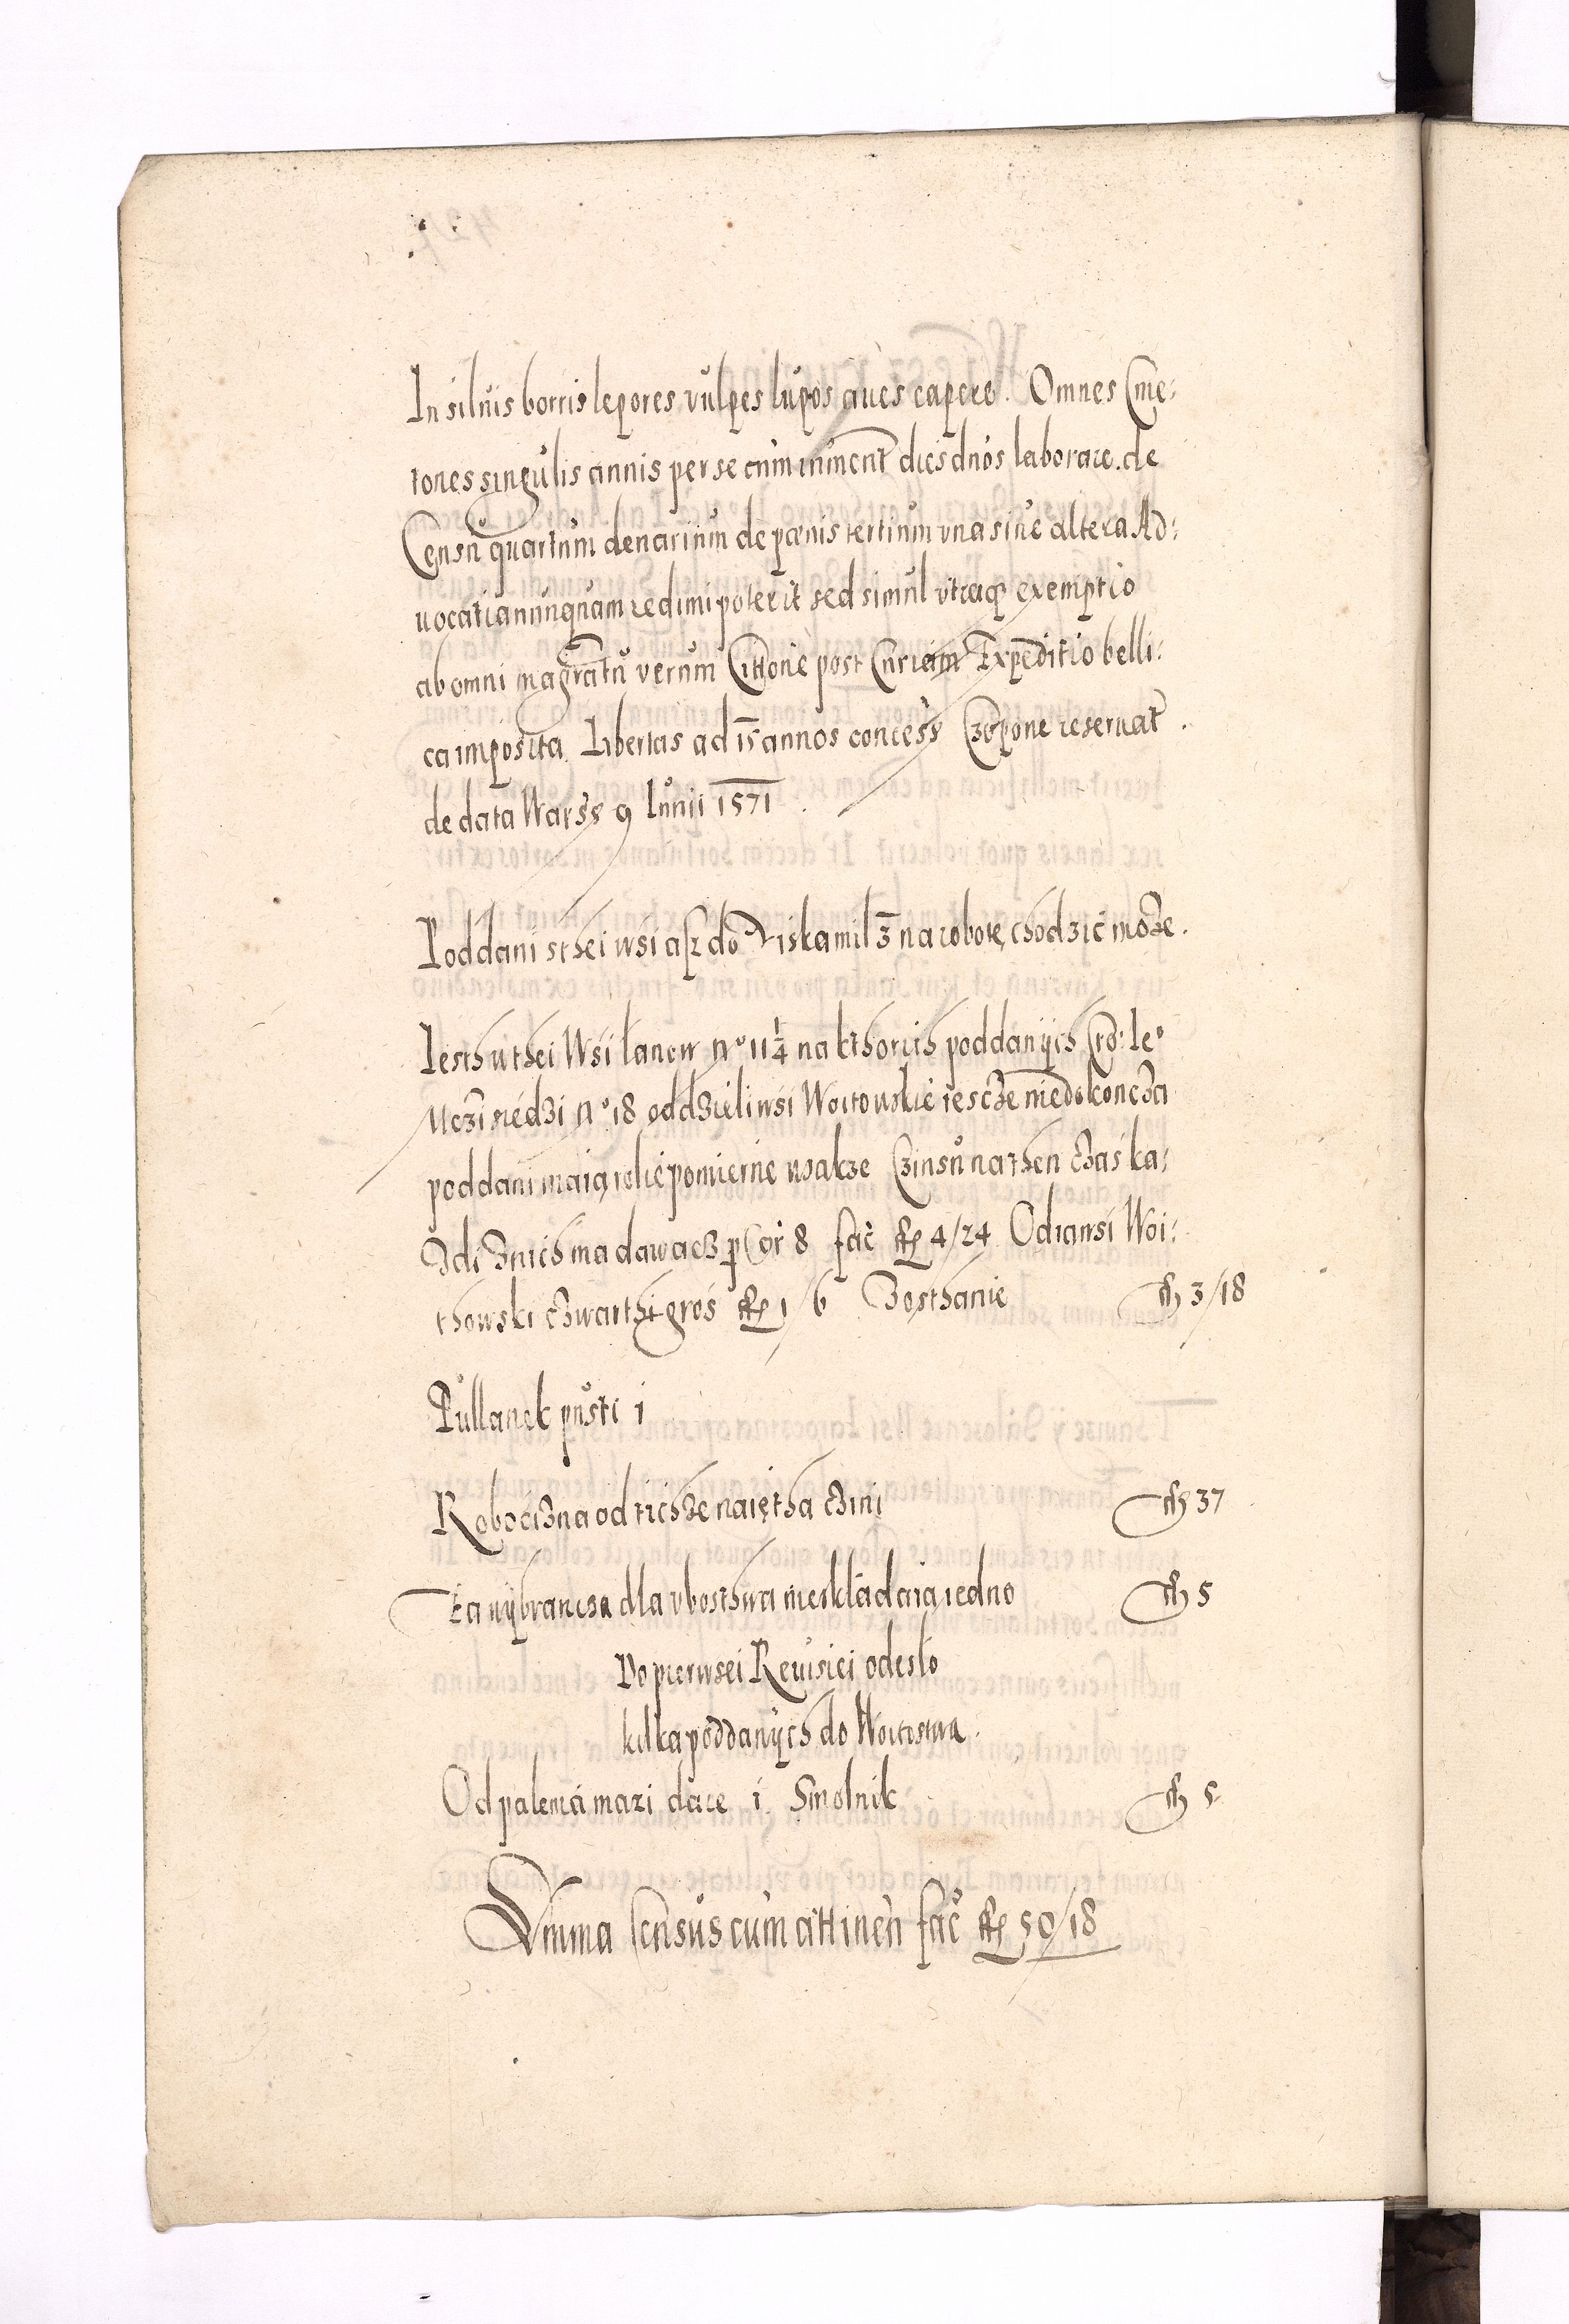 In siluis borris lepores vulpes lupos aues capere. Omnes Cme:
tones singulis annis per se cum iument dies duos laborare. de
Censu quartum denarium de poenis tertium vna siue altera Ad:
uocatia nunquam redimi poterit sed simul vtraque exemptio
ab omni magratu verum Citione post Curiam Expeditio belli:
ca imposita. Libertas ad 15 annos concess reseruat.
de data Warss 9 Iunii 1571.
Poddani s thei wsi asz do mil 3 na robote chodzić może.
Iesth w thei Wsi lanow n° 11¼ na kthorich poddanÿch
siedzi n° 18 od dzieli wsi Woitowskie iescże niedokoncża
poddani maią role pomierne wsakże Czinsu na then cżas ka:
żdi żnich ma dawacz p Cor 8 fac fl 4/24 Od ią wsi Woi:
thowski cżwarthi gros fl 1/6 Zosthanie fl 3/18
Pullanek pusti 1
Robocizna od tichże naiętha cżini fl 37
dla vbosthwa nieskładaią iedno fl 5
Po pierwsei Reuisiei odesło
kilka poddanÿch do Woitostwa.
Od palenia mazi daie 1. Smolnik fl 5
Summa census cum attinen fac fl 50/18